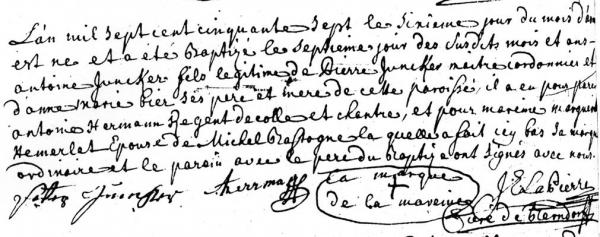 L'an mil sept cent cinquante sept le sixieme jour du mois d'
est ne et a été Baptizé le septieme jour des susdits mois et ans
antoine Juncker fils legitime de Pierre Juncker maitre cordonnier et
d'anne marie bier ses pere et mere de cette paroisse, il a eu pour parein
antoine Hermann Regent d'ecolle et chantre, et pour mareine marguerit
Hemerlet Epouse de Michel Bastogne la quelle a fait icy bas sa marque
ordinaire et le parein avec le pere du Baptizé ont signés avec nous
Juncker aherman la marque JE LaPierre
de la mareine Curé de